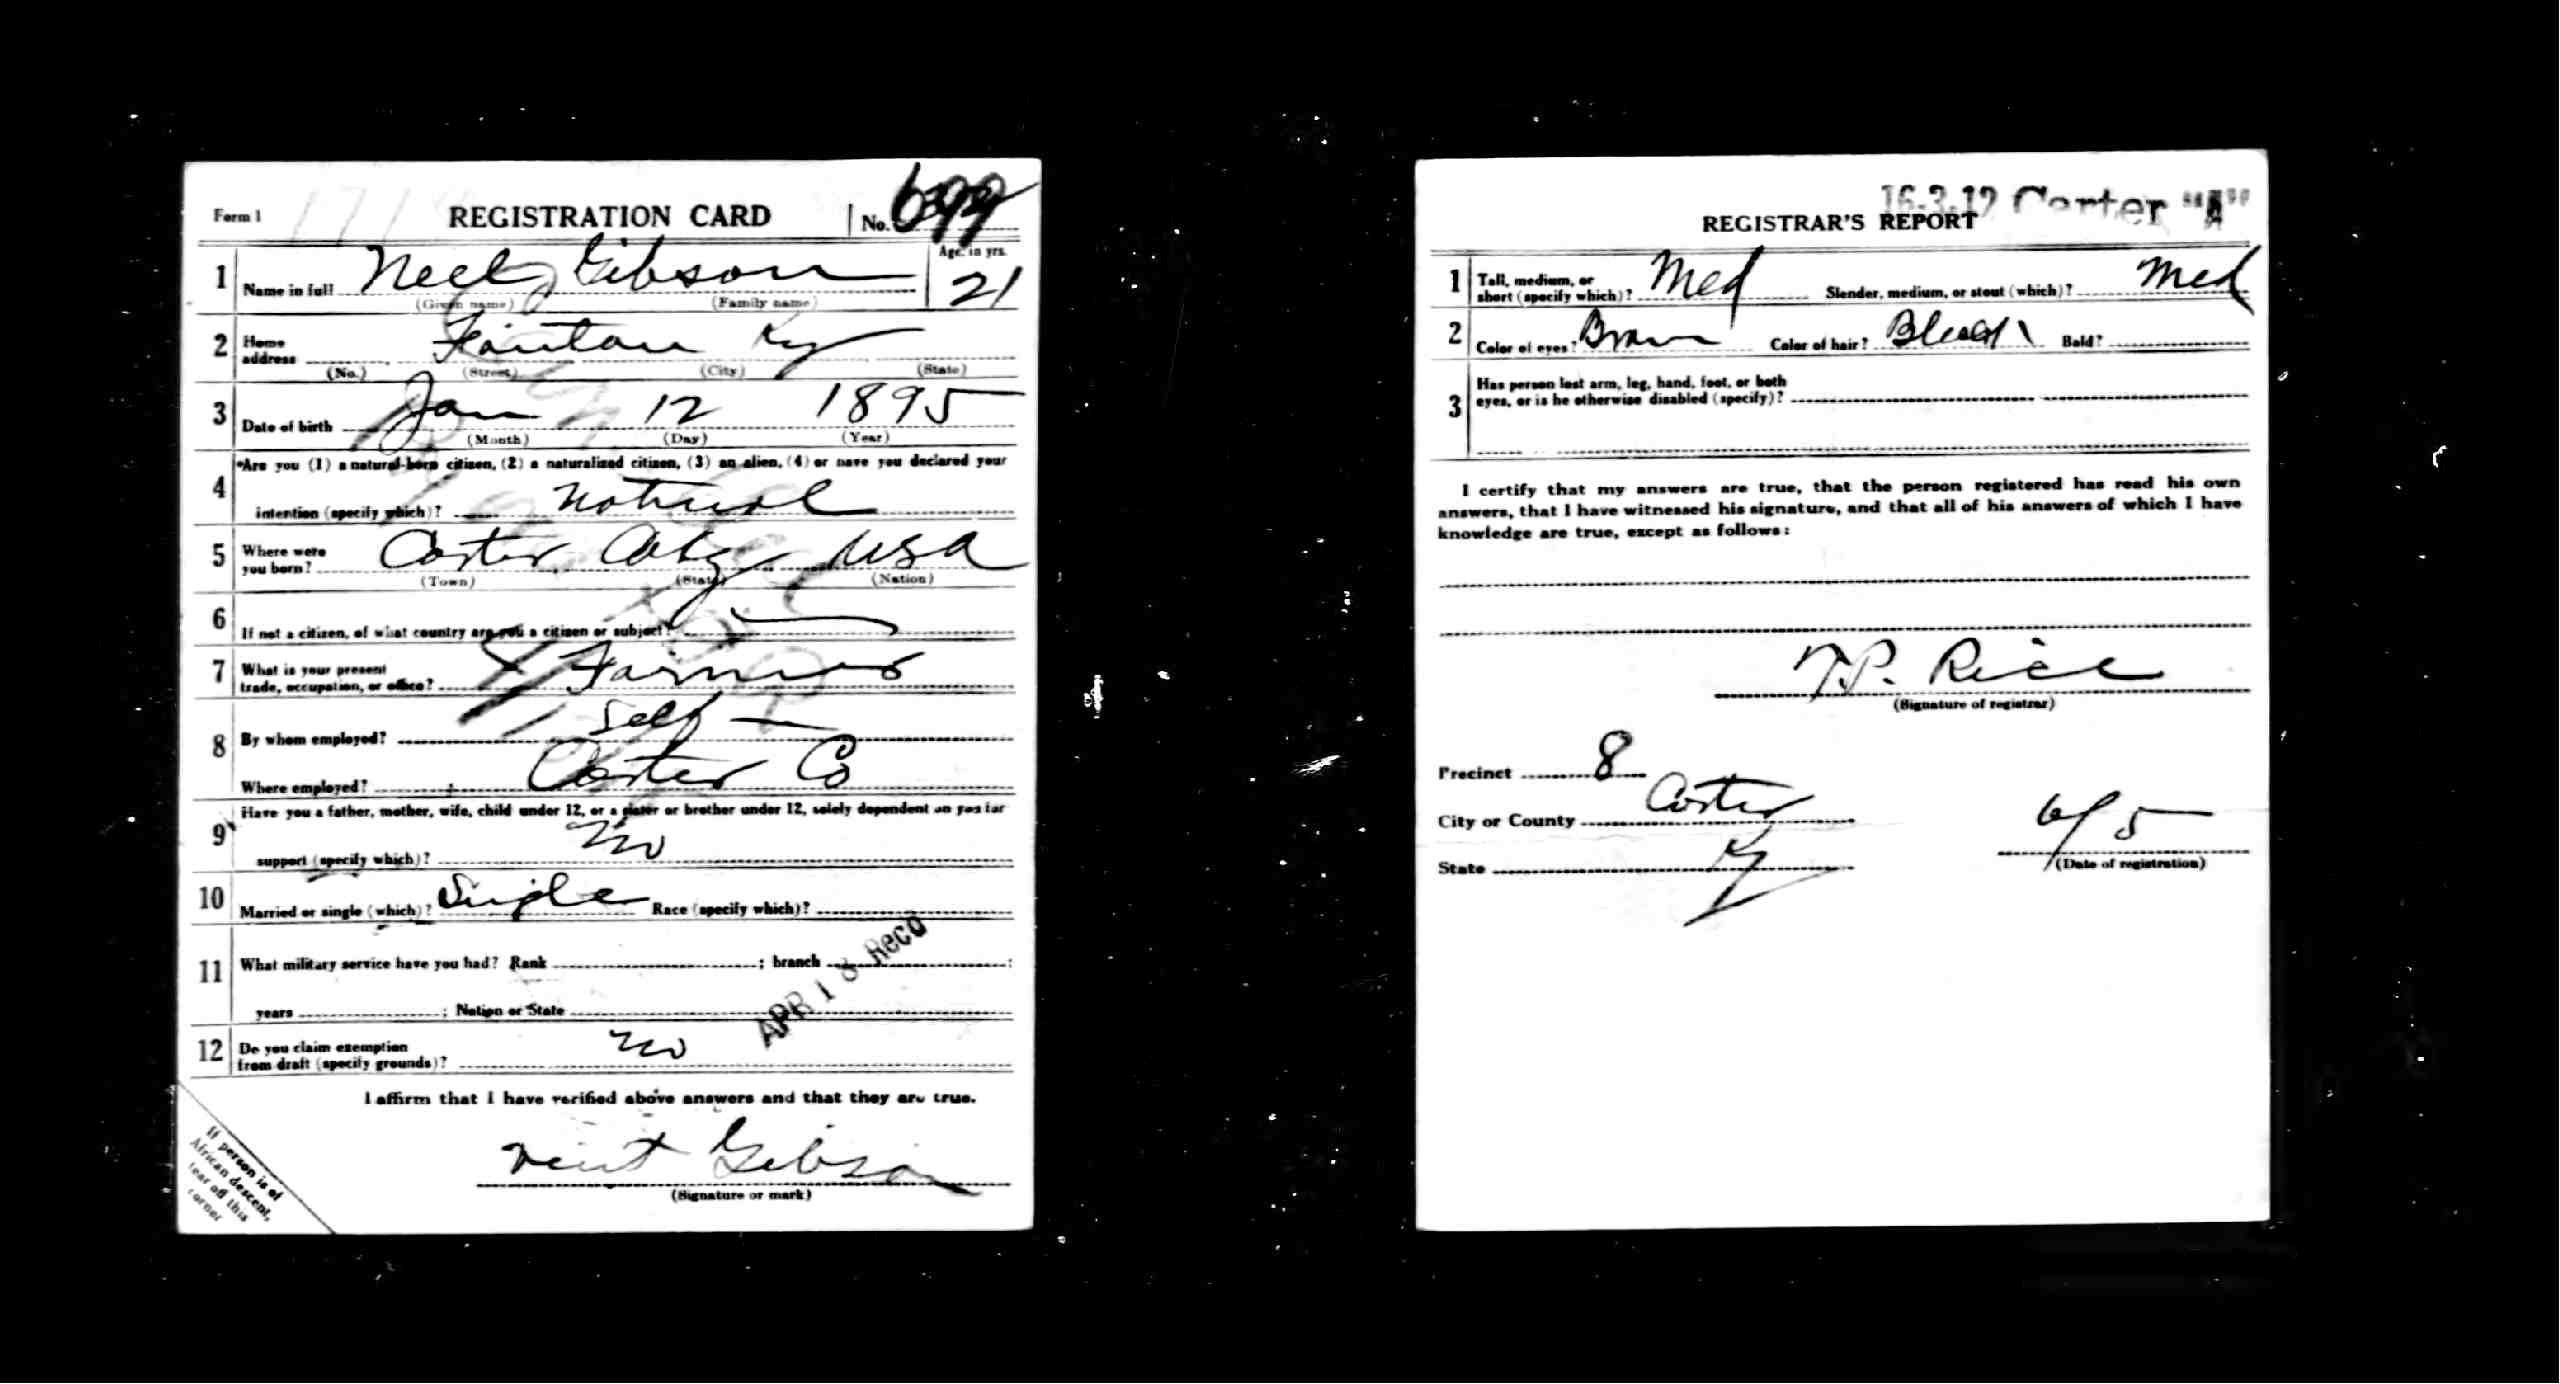 Form 1
REGISTRATION CARD No.
1 Name in full Gibson Age, in yrs. 21
(Given name) (Family name)
2 Home address Ky
(No.) (Street) (City) (State)
3 Date of birth Jan 12 1895
(Month) (Day) (Year)
4 *Are you (1) a natural-born citizen, (2) a naturalized citizen, (3) an alien, (4) or have you declared your
intention (specify which)? Natural
5 Where were you born? Carter Co Ky USA
(Town) (State) (Nation)
6 If not a citizen, of what country are you a citizen or subject?
7 What is your present trade, occupation, or office? Farmer
8 By whom employed? Self
Where employed? Carter Co
9 Have you a father, mother, wife, child under 12, or a sister or brother under 12, solely dependent on you for
support (specify which)? no
10 Married or single (which)? Single Race (specify which)?
11 What military service have you had? Rank ; branch ;
years ; Nation or State
APR 18 Recd
12 Do you claim exemption from draft (specify grounds)? no
I affirm that I have verified above answers and that they are true.
Gibson
(Signature or mark)
If person is of
African descent,
tear off this
corner
16-3-12 Carter "A"
REGISTRAR'S REPORT
1 Tall, medium, or short (specify which)? Med Slender, medium, or stout (which)? Med
2 Color of eyes? Brown Color of hair? Black Bald?
3 Has person lost arm, leg, hand, foot, or both
eyes, or is he otherwise disabled (specify)?
I certify that my answers are true, that the person registered has read his own
answers, that I have witnessed his signature, and that all of his answers of which I have
knowledge are true, except as follows:
Rice
(Signature of registrar)
Precinct 8
City or County Carter
State Ky
6/5
(Date of registration)